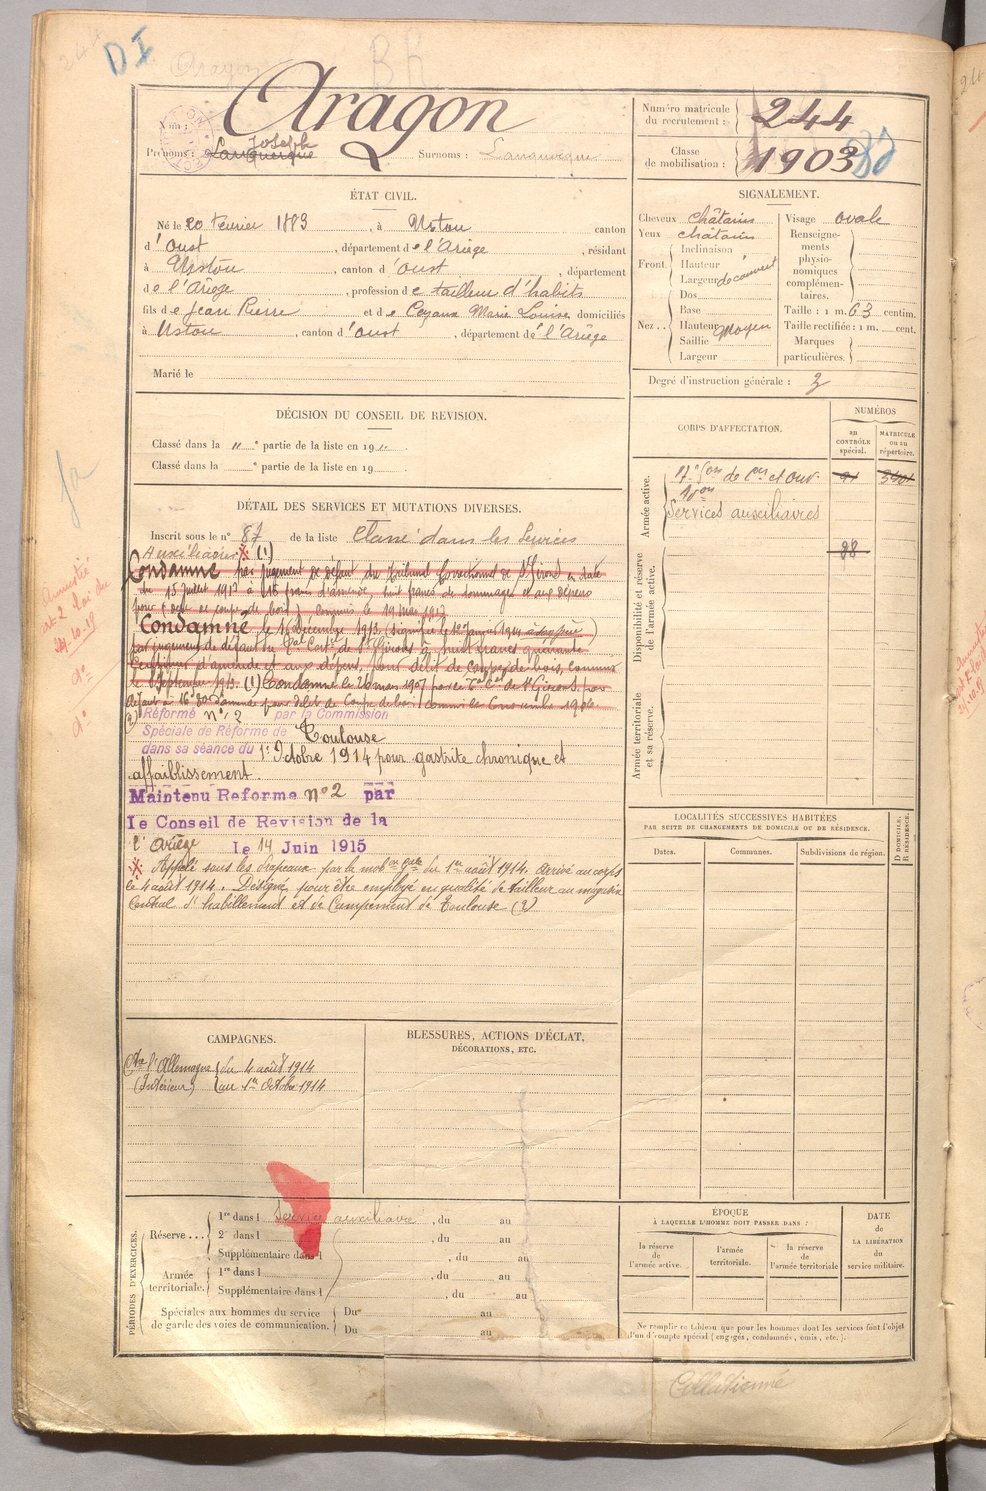 DI
BR
Nom : Aragon
Prénoms : Languergue Joseph Surnoms : Languergue
Numéro matricule du recrutement : 244
Classe de mobilisation : 1903
ÉTAT CIVIL.
Né le 20 février 1883, à Ustou canton
d'Oust, département de l'Ariège, résidant
à Ustou, canton d'Oust, département
de l'Ariège, profession de tailleur d'habits
fils de Jean Pierre et de Cazaux Marie Louise domiciliés
à Ustou, canton d'Oust, département de l'Ariège
Marié le
SIGNALEMENT.
Cheveux châtains Visage ovale
Yeux châtains
Front. Inclinaison
Hauteur
Largeur découvert
Nez... Dos
Base
Hauteur moyen
Saillie
Largeur
Renseignements physionomiques complémentaires.
Taille : 1 m. 63 centim.
Taille rectifiée : 1 m. cent.
Marques particulières.
Degré d'instruction générale : 3
DÉCISION DU CONSEIL DE REVISION.
Classé dans la " e partie de la liste en 19 "
Classé dans la e partie de la liste en 19
CORPS D'AFFECTATION.
NUMÉROS
au CONTRÔLE spécial.
MATRICULE ou au répertoire.
Armée active.
17e Son de Cis et Ouv.
Services auxiliaires
88
Disponibilité et réserve de l'armée active.
Armée territoriale et sa réserve.
DÉTAIL DES SERVICES ET MUTATIONS DIVERSES.
Inscrit sous le n° 87 de la liste Classé dans les Services
Auxiliaires (1)
Condamné par jugement de défaut du Tribunal Correctionnel de St Girons en date
du 15 juillet 1913 à 116 francs d'amende huit francs de dommages et aux dépens
pour (délit de coupe de bois) commis le 19 mai 1913
Condamné le 16 décembre 1913 (signifié le 12 janvier 1914
par jugement de défaut du Bal Corel de St Girons à huit francs quarante
centimes d'amende et aux dépens, pour délit de coupe de bois, commis
le 8 Septembre 1913. (1) Condamné le 26 mars 1907 par le Bal Cel de St Girons par
défaut à 16 d'amende pour délit de Coupe de bois, commis le
(2) Réformé n° 2 par la Commission
Spéciale de Réforme de Toulouse
dans sa séance du 1er Octobre 1914 pour gastrite chronique et
affaiblissement.
Maintenu Reforme n° 2 par
le Conseil de Revision de la
l'Ariège le 14 Juin 1915
Appelé sous les drapeaux par la mobon gale du 1er août 1914. Arrivé au corps
le 4 août 1914. Désigné pour être employé en qualité de tailleur au magasin
Central d'habillement et de Campement de Toulouse (2)
LOCALITÉS SUCCESSIVES HABITÉES
PAR SUITE DE CHANGEMENTS DE DOMICILE OU DE RÉSIDENCE.
Dates. Communes. Subdivisions de région.
D DOMICILE.
R RÉSIDENCE.
CAMPAGNES.
Ctre l'Allemagne du 4 août 1914
(Intérieur) au 1er Octobre 1914
BLESSURES, ACTIONS D'ÉCLAT,
DÉCORATIONS, ETC.
PÉRIODES D'EXERCICES.
Réserve... 1re dans l Service auxiliaire, du au
2e dans l , du au
Supplémentaire dans l , du au
Armée territoriale. 1re dans l , du au
Supplémentaire dans l , du au
Spéciales aux hommes du service de garde des voies de communication. Du au
Du au
ÉPOQUE
À LAQUELLE L'HOMME DOIT PASSER DANS :
la réserve de l'armée active.
l'armée territoriale.
la réserve de l'armée territoriale
DATE
de
LA LIBÉRATION
du
service militaire.
Ne remplir ce tableau que pour les hommes dont les services font l'objet
d'un décompte spécial (engagés, condamnés, omis, etc.).
Collationné